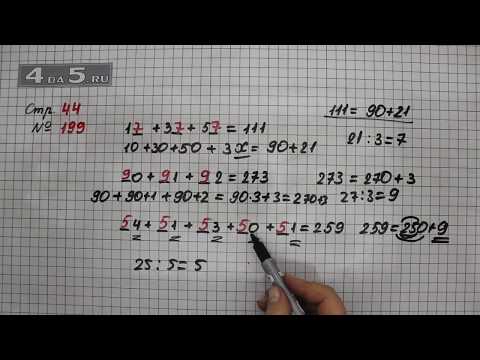 4 ДА 5.RU
Стр. 44
№ 199
17 + 37 + 57 = 111
10+30+50 + 3x = 90+21
111 = 90+21
21 : 3 = 7
90 + 91 + 92 = 273
273 = 270 + 3
90 + 90+1 + 90+2 = 90·3+3 = 270+3
27 : 3 = 9
54 + 51 + 53 + 50 + 51 = 259
259 = 250+9
25 : 5 = 5